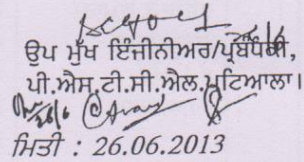 ਉਪ ਮੁੱਖ ਇੰਜੀਨੀਅਰ/ਪ੍ਰਬੰਧਕੀ,
ਪੀ.ਐਸ.ਟੀ.ਸੀ.ਐਲ.ਪਟਿਆਲਾ।
ਮਿਤੀ : 26.06.2013